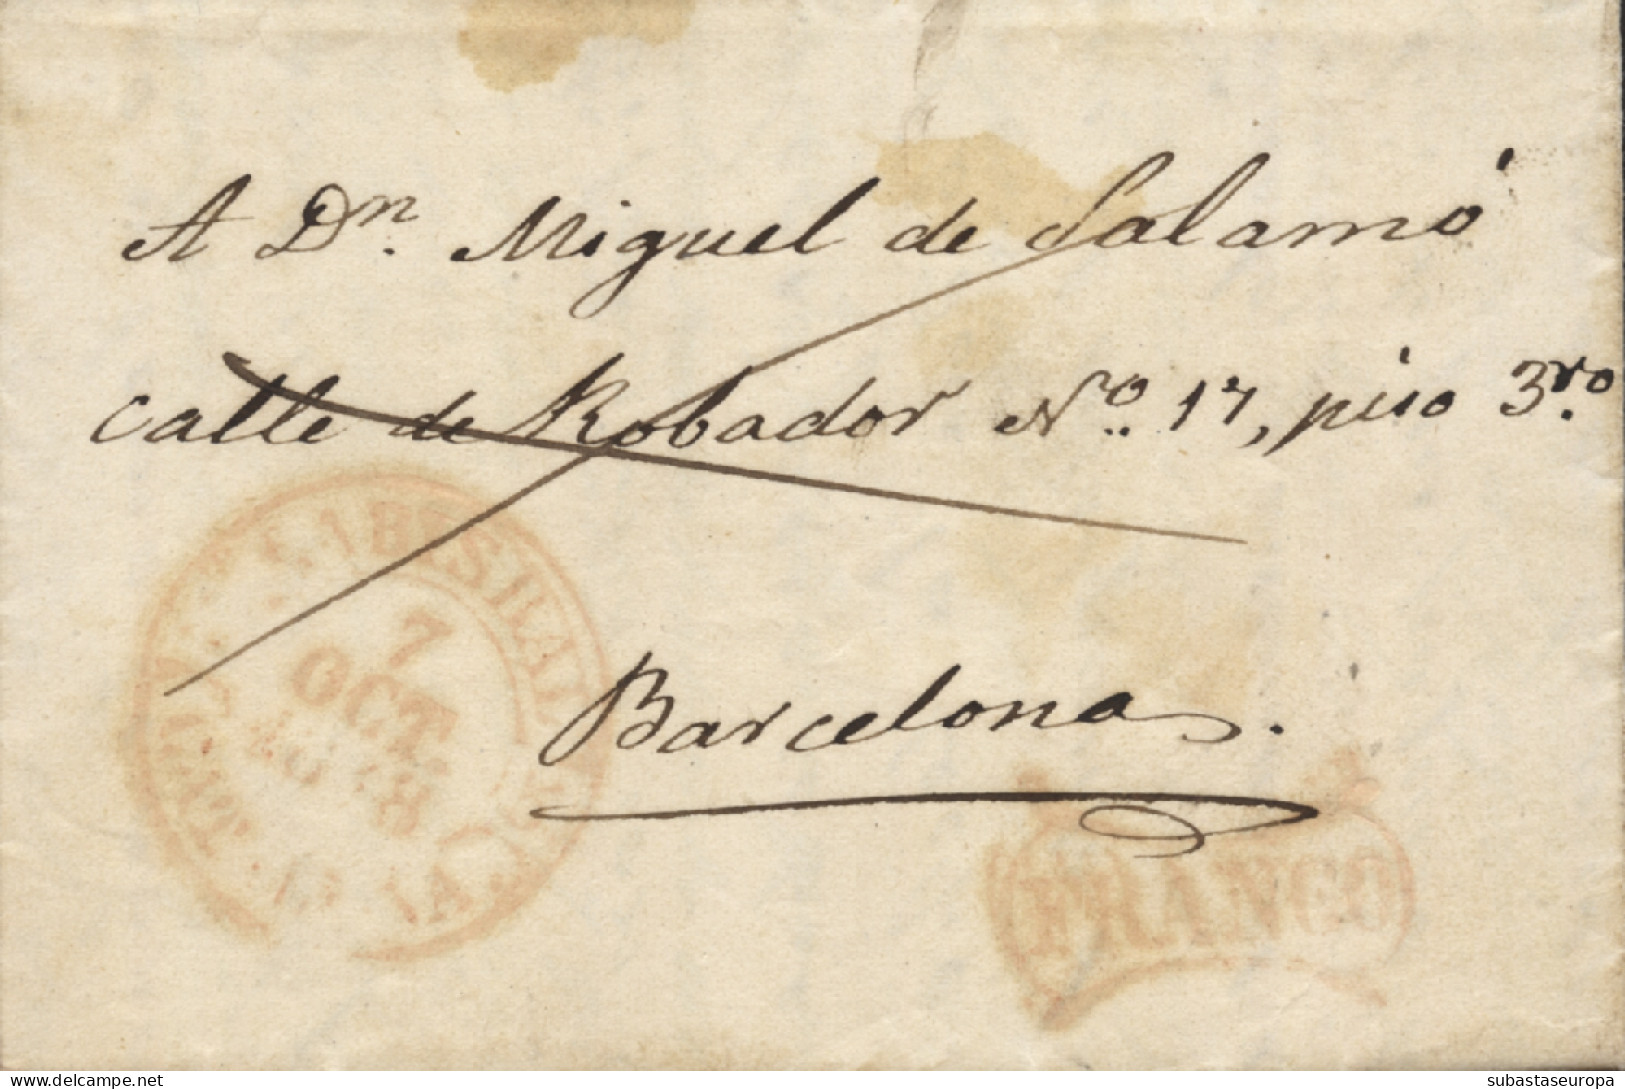 A Dn. Miguel de Salamó
calle de Robador Nº. 17, piso 3ro.
Barcelona.
7
OCT.
1848
FRANCO
https://www.delcampe.net
subastaseuropa